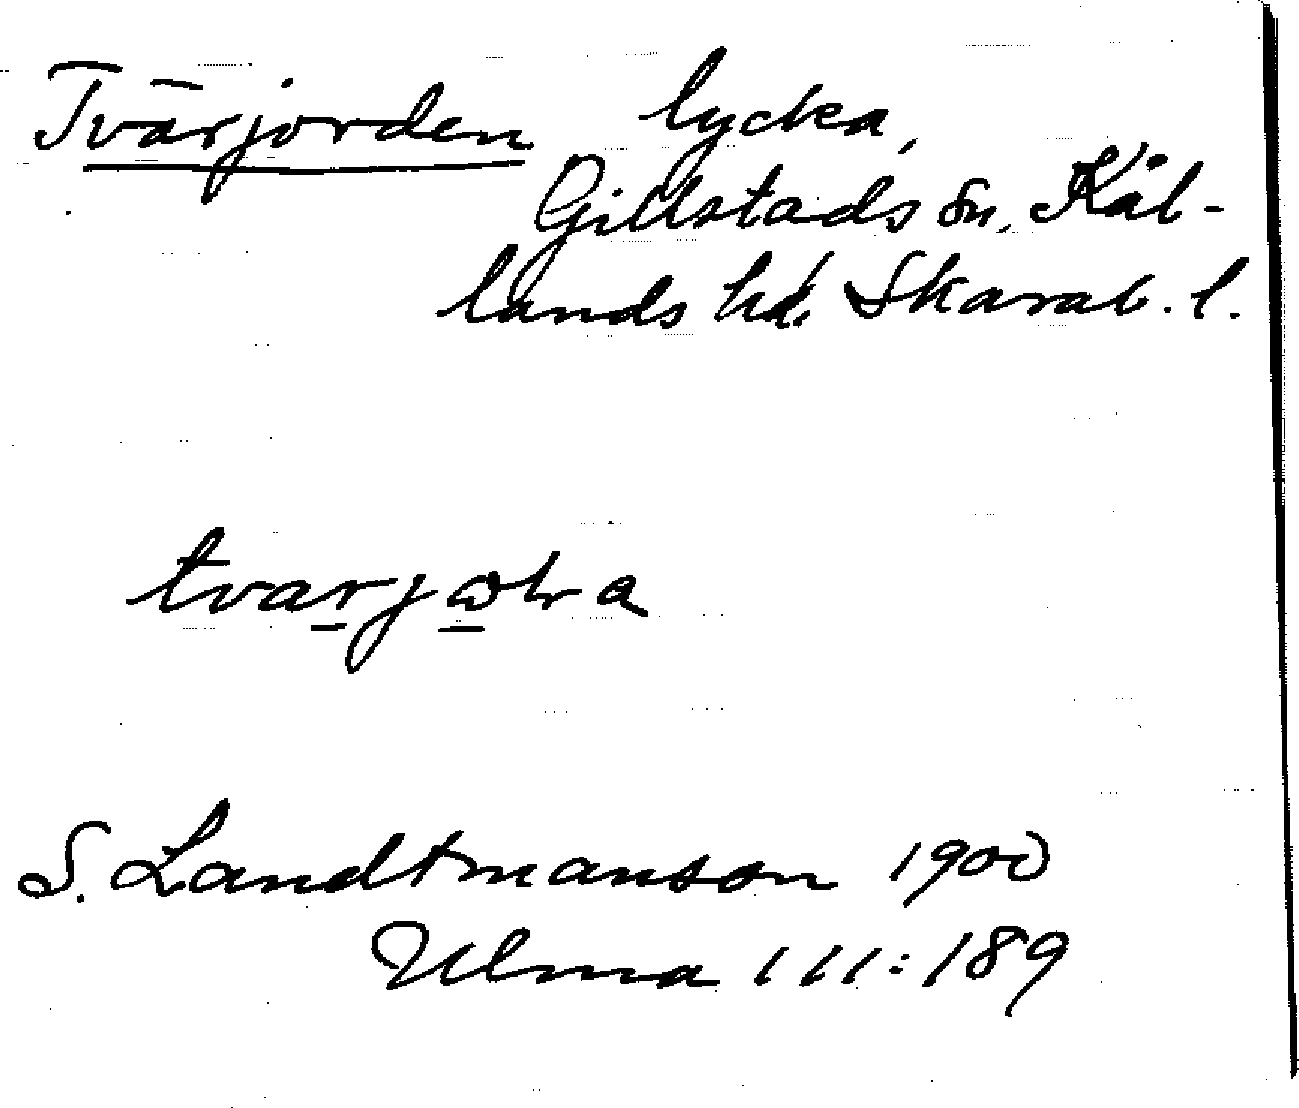 Tvärjorden lycka,
Gillstads sn, Kål-
lands hd. Skarab. l.
S. Landtmanson 1900
Ulma 111:189